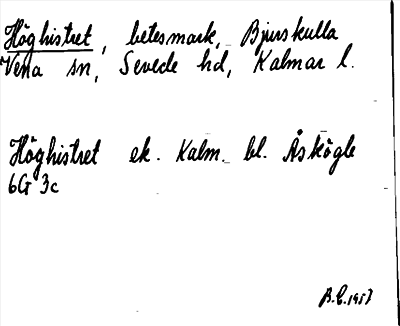 Höghistret, betesmark, Bjurskulla
Vena sn, Sevede hd, Kalmar l.
Höghistret ek. Kalm. bl. Åskögle
6G 3c
B.E. 1957